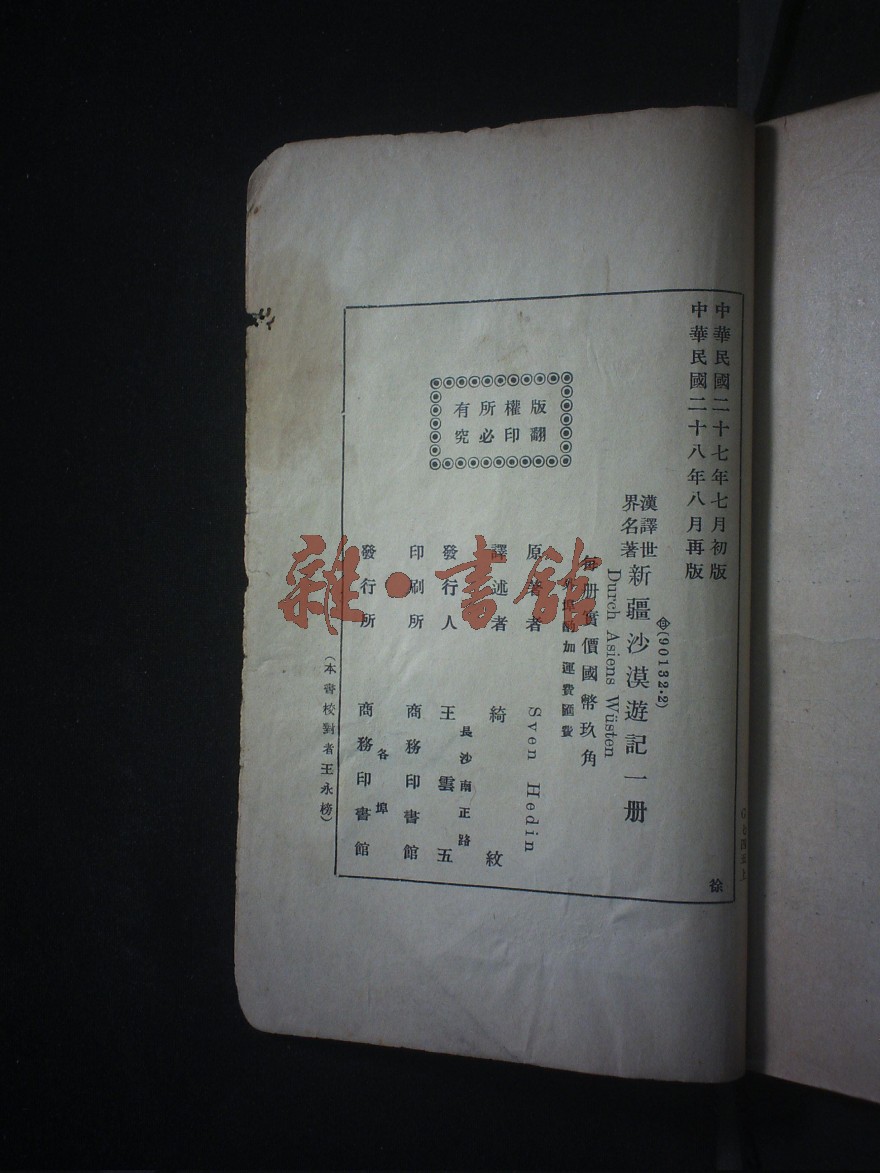 中華民國二十七年七月初版
中華民國二十八年八月再版
(90132·2)
漢譯世
界名著
新疆沙漠遊記一册
Durch Asiens Wüsten
每册實價國幣玖角
外埠酌加運費匯費
原著者 Sven Hedin
譯述者 綺紋
長沙南正路
發行人 王雲五
印刷所 商務印書館
各埠
發行所 商務印書館
(本書校對者王永榜)
版權所有
翻印必究
徐
雜·書館